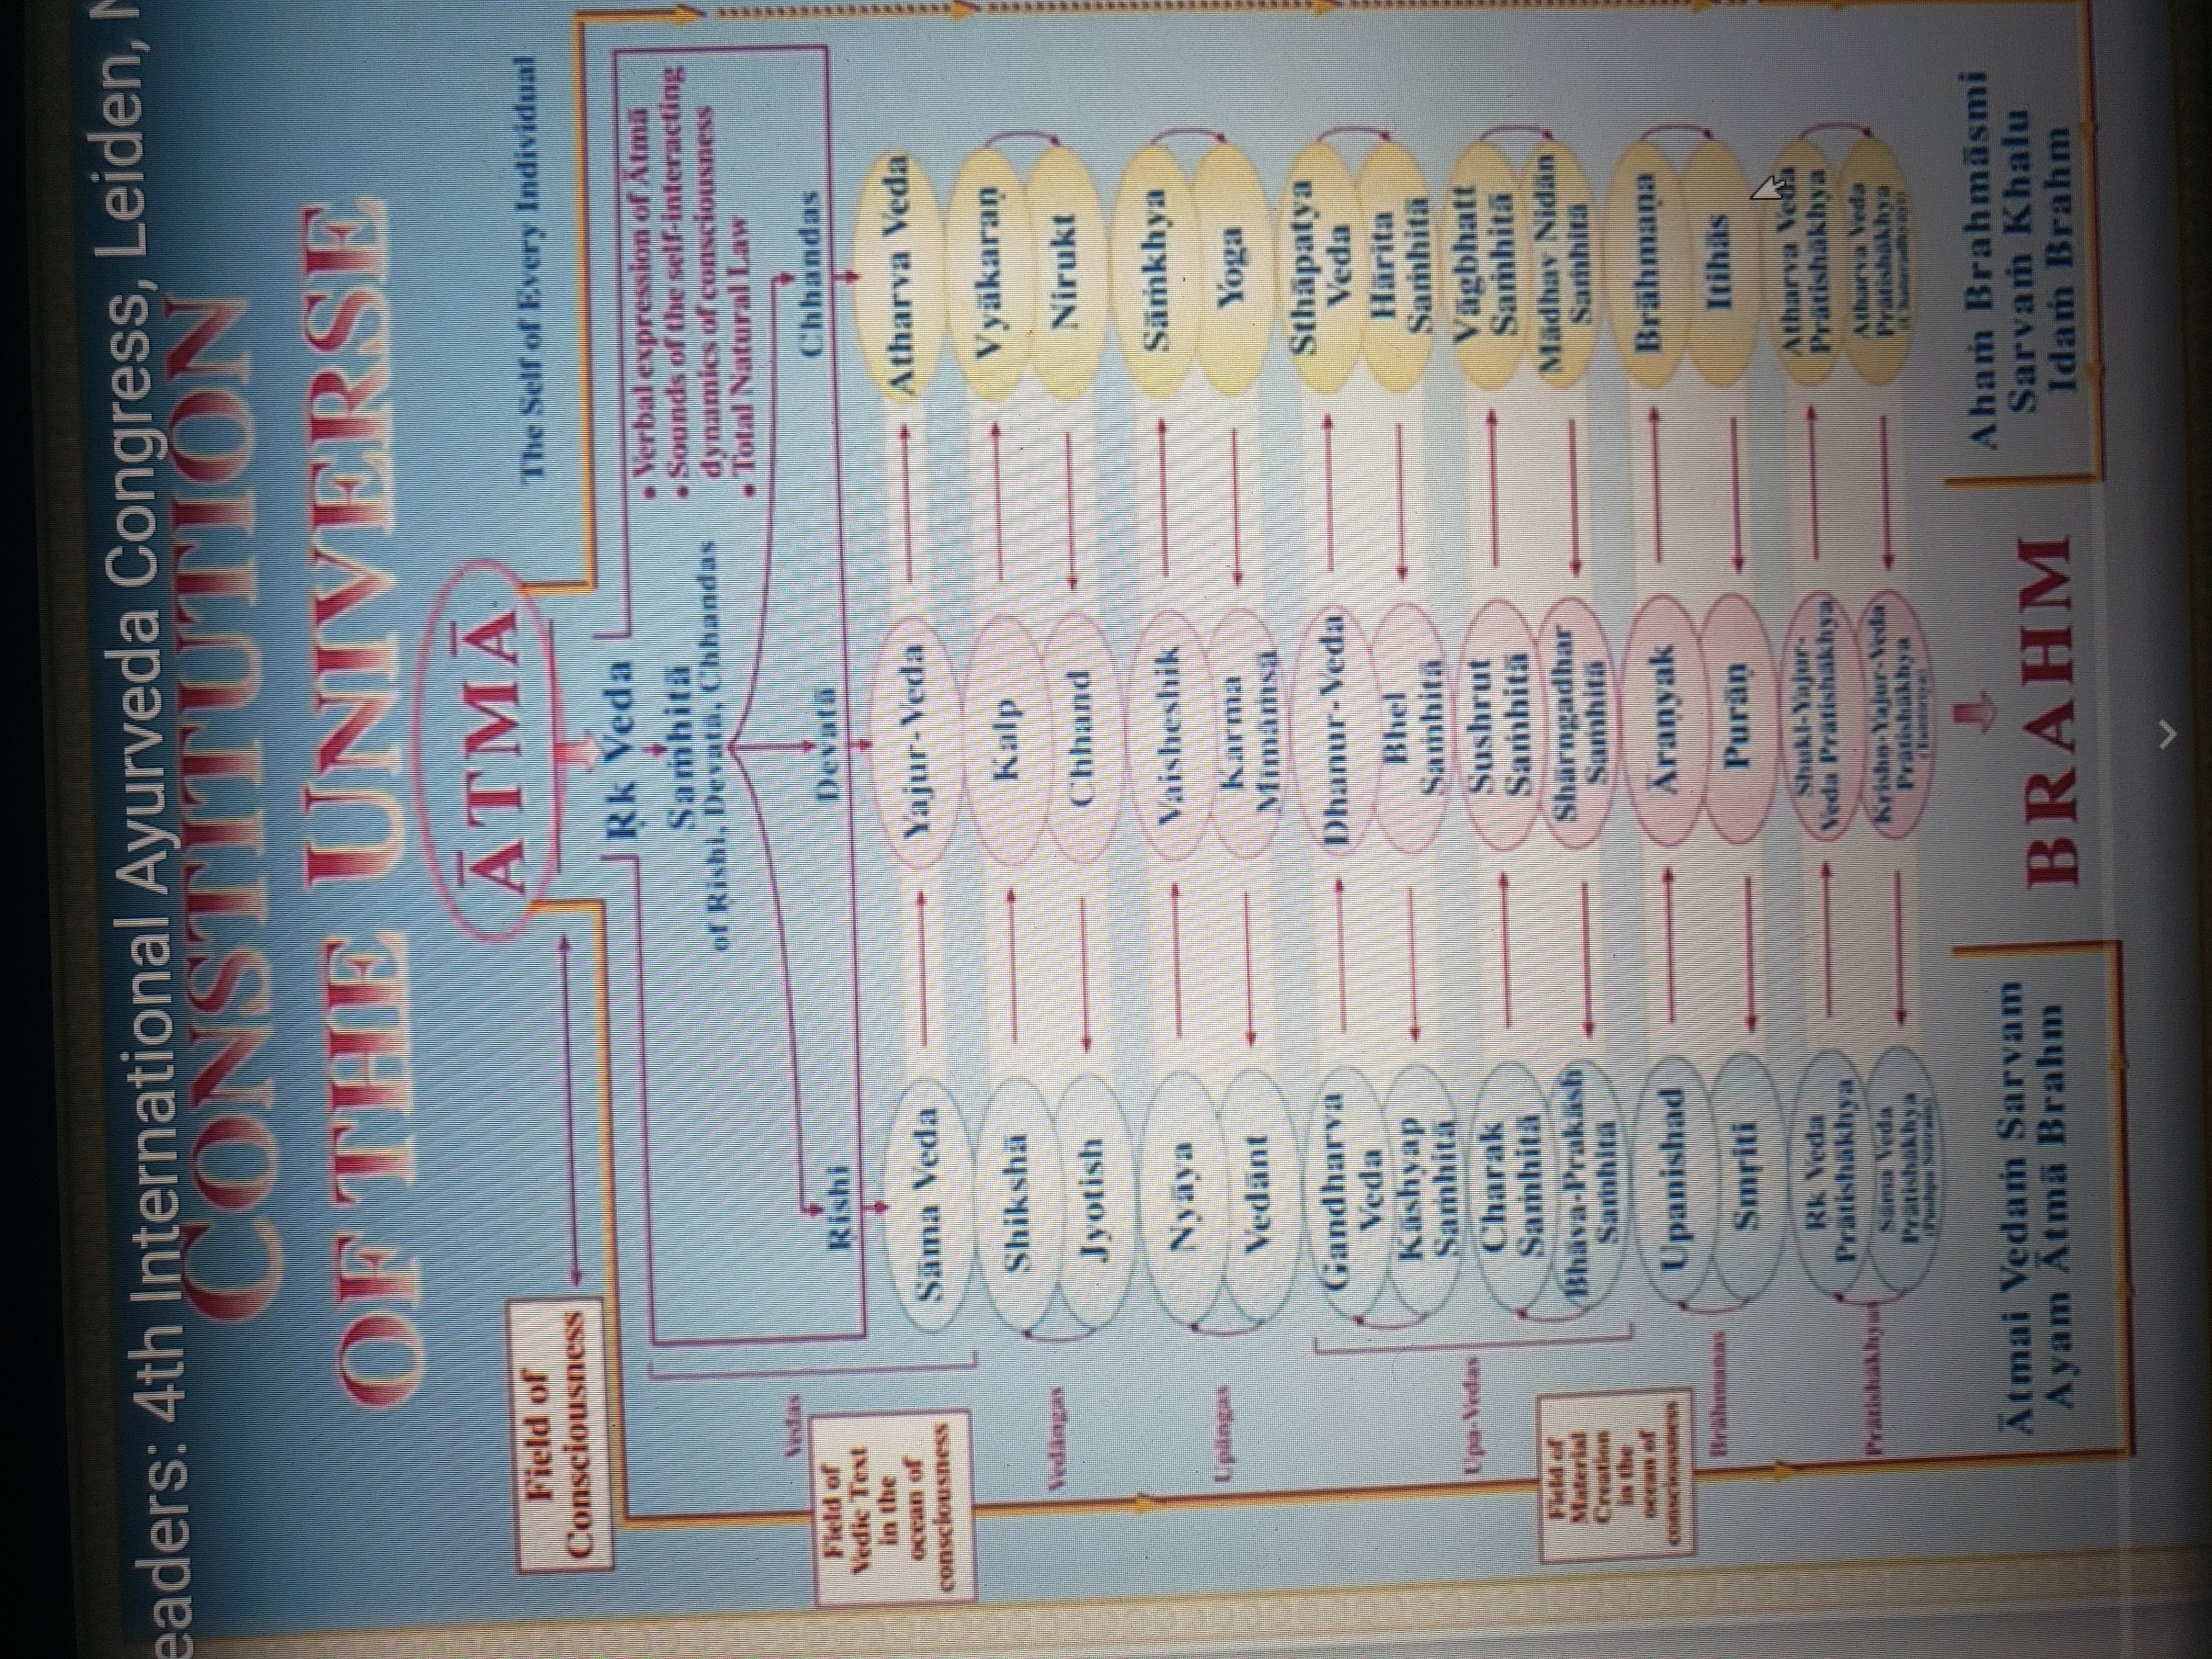 eaders: 4th International Ayurveda Congress, Leiden,
CONSTITUTION
OF THE UNIVERSE
ĀTMĀ
The Self of Every Individual
Field of
Consciousness
Ṛk Veda
Saṁhitā
of Ṛishi, Devatā, Chhandas
• Verbal expression of Ātmā
• Sounds of the self-interacting
dynamics of consciousness
• Total Natural Law
Ṛishi
Devatā
Chhandas
Vedas
Field of
Vedic Text
in the
ocean of
consciousness
Sāma Veda
Yajur-Veda
Atharva Veda
Vedāngas
Shikshā
Kalp
Vyākaraṇ
Jyotish
Chhand
Nirukt
Upāngas
Nyāya
Vaisheshik
Sāṁkhya
Vedānt
Karma
Mīmāṁsā
Yoga
Upa-Vedas
Gandharva
Veda
Dhanur-Veda
Sthāpatya
Veda
Kāshyap
Saṁhitā
Bhel
Saṁhitā
Hārīta
Saṁhitā
Charak
Saṁhitā
Sushrut
Saṁhitā
Vāgbhatt
Saṁhitā
Bhāva-Prakāsh
Saṁhitā
Shārngadhar
Saṁhitā
Mādhav Nidān
Saṁhitā
Field of
Material
Creation
in the
ocean of
consciousness
Brāhmanas
Upanishad
Āraṇyak
Brāhmaṇa
Smṛiti
Purāṇ
Itihās
Prātishākhyas
Ṛk Veda
Prātishākhya
Shukl-Yajur-
Veda Prātishākhya
Atharva Veda
Prātishākhya
Sāma Veda
Prātishākhya
(Pushpa Sūtram)
Krishn-Yajur-Veda
Prātishākhya
(Taittirīya)
Atharva Veda
Prātishākhya
(Chaturadhyāyī)
Ātmai Vedaṁ Sarvam
Ayam Ātmā Brahm
BRAHM
Ahaṁ Brahmāsmi
Sarvaṁ Khalu
Idaṁ Brahm